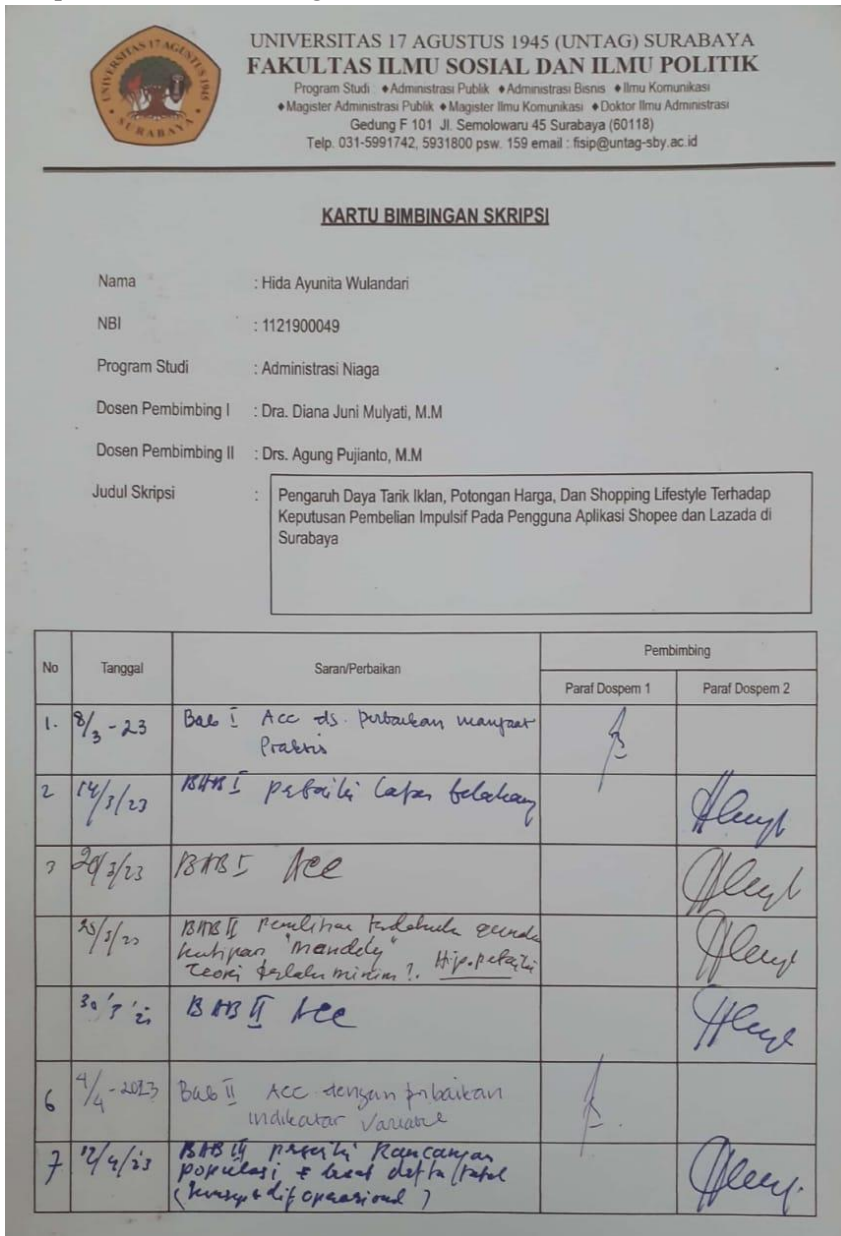 UNIVERSITAS 17 AGUSTUS 1945
SURABAYA
UNIVERSITAS 17 AGUSTUS 1945 (UNTAG) SURABAYA
FAKULTAS ILMU SOSIAL DAN ILMU POLITIK
Program Studi : ♦Administrasi Publik ♦Administrasi Bisnis ♦Ilmu Komunikasi
♦Magister Administrasi Publik ♦Magister Ilmu Komunikasi ♦Doktor Ilmu Administrasi
Gedung F 101 Jl. Semolowaru 45 Surabaya (60118)
Telp. 031-5991742, 5931800 psw. 159 email : fisip@untag-sby.ac.id
KARTU BIMBINGAN SKRIPSI
Nama : Hida Ayunita Wulandari
NBI : 1121900049
Program Studi : Administrasi Niaga
Dosen Pembimbing I : Dra. Diana Juni Mulyati, M.M
Dosen Pembimbing II : Drs. Agung Pujianto, M.M
Judul Skripsi : Pengaruh Daya Tarik Iklan, Potongan Harga, Dan Shopping Lifestyle Terhadap
Keputusan Pembelian Impulsif Pada Pengguna Aplikasi Shopee dan Lazada di
Surabaya
No Tanggal Saran/Perbaikan Pembimbing
Paraf Dospem 1 Paraf Dospem 2
1. 8/3 - 23 Bab I Acc ds. perbaikan manfaat
Praktis
2 14/3/23 BAB I perbaiki latar belakang
3 20/3/23 BAB I Acc
BAB II penelitian terdahulu
kutipan "mandely" Hip. perbaiki
Teori terlalu minim?.
BAB II Acc
6 4/4 - 2023 Bab II Acc dengan perbaikan
indikator variabel
7 12/4/23 BAB III perbaiki Rancangan
populasi